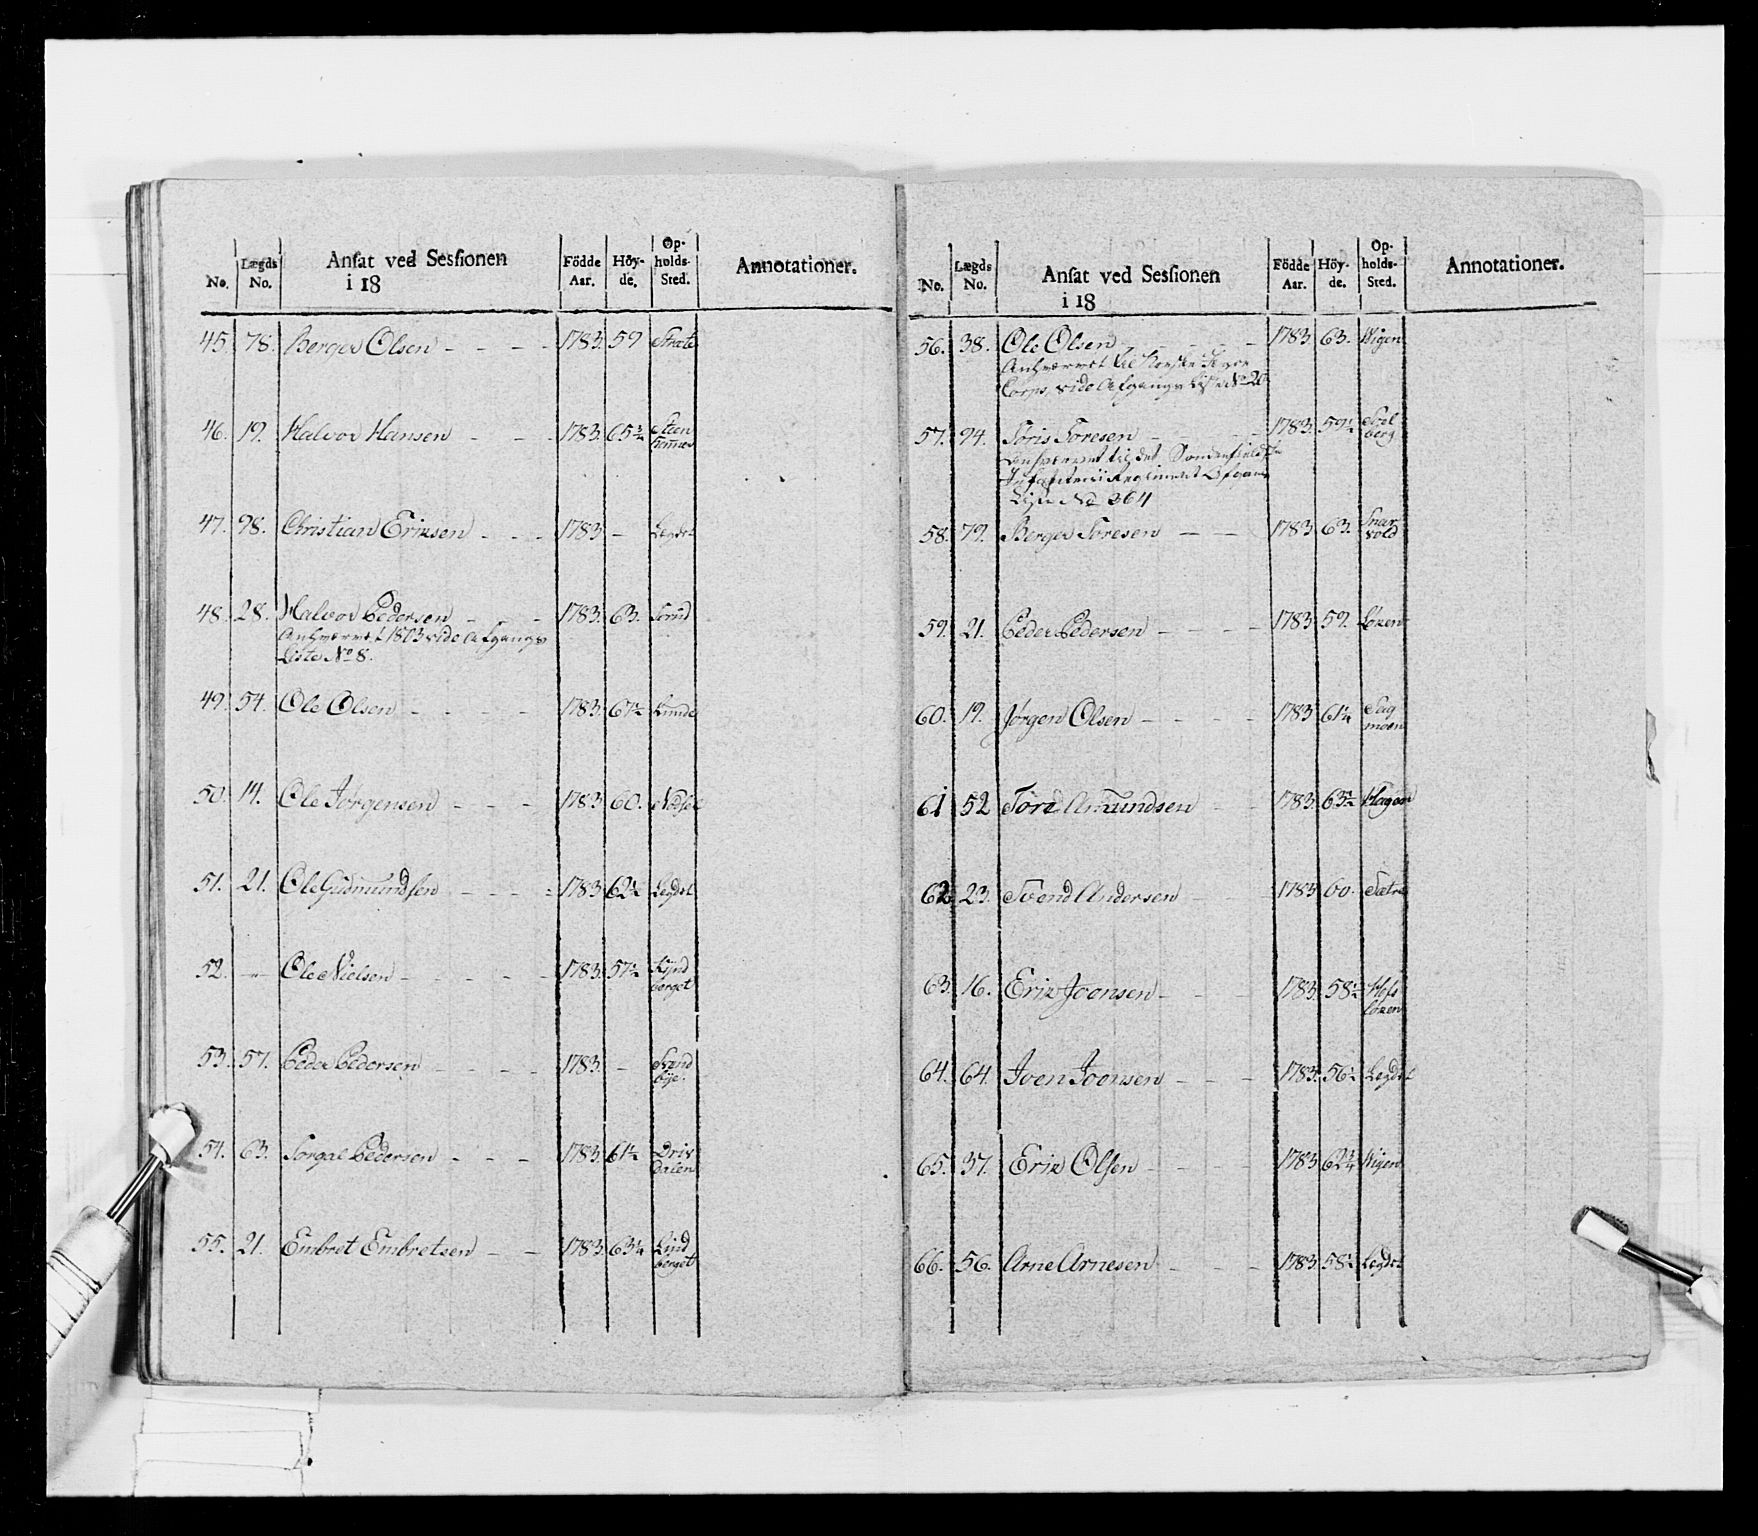 No. Lægds No. Ansat ved Sessionen i 18 Födde Aar. Höy-de. Op-holds-Sted. Annotationer.
45. 78. Berger Olsen - - - - 1783. 59
46. 19. Halvor Hansen - - - 1783. 65¾ Steen
47. 98. Christian Eriksen - - - 1783 - Legdet
48. 28. Halvor Pedersen - - - 1783. 63.
Anhværvet 1803 vide Afgangs
Liste No 8.
49. 54. Ole Olsen - - - - 1783. Lunde
50. 14. Ole Jørgensen - - - 1783 60.
51. 21. Ole Gudmundsen - - - 1783 62½ Legdet
52. - Ole Nielsen - - - - 1783. 57½
berget
53. 57. Peder Pedersen - - - - 1783. - Sand
bye.
54. 63. Pedersen - - - 1783. 61½
dalen
55. 21. Embret Embretsen - - 1783. 63¼ Lind
berget
No. Lægds No. Ansat ved Sessionen i 18 Födde Aar. Höy-de. Op-holds-Sted. Annotationer.
56. 38. Ole Olsen - - - - 1783 63. Wigen
Anhværvet til Norske Jæger
Corps, vide Afgangs Liste No
57. 94. Toris Toresen - - - 1783. 59½
berg
Anhværvet til det Søndenfieldske
Infanterie Regiment Afgangs
Liste No 264
58. 79. Berger Toresen - - 1783 63. Snar
vold
59. 21. Peder Pedersen - - - 1783 59. Løken
60. 19. Jørgen Olsen - - - - 1783 61¼ Sag
moen
61 52 Tore Amundsen - - 1783. Hagen
62 23. Svend Andersen - - 1783 60. Sætre
63. 16. Erik Joensen - - - 1783. 58½ Hofs
løken
64. 64. Joen Joensen - - - 1783. 56½ Legdet
65. 37. Erik Olsen - - - - 1783 62¾ Wigen
66. 56. Arne Arnesen - - - 1783. 58½ Legdet